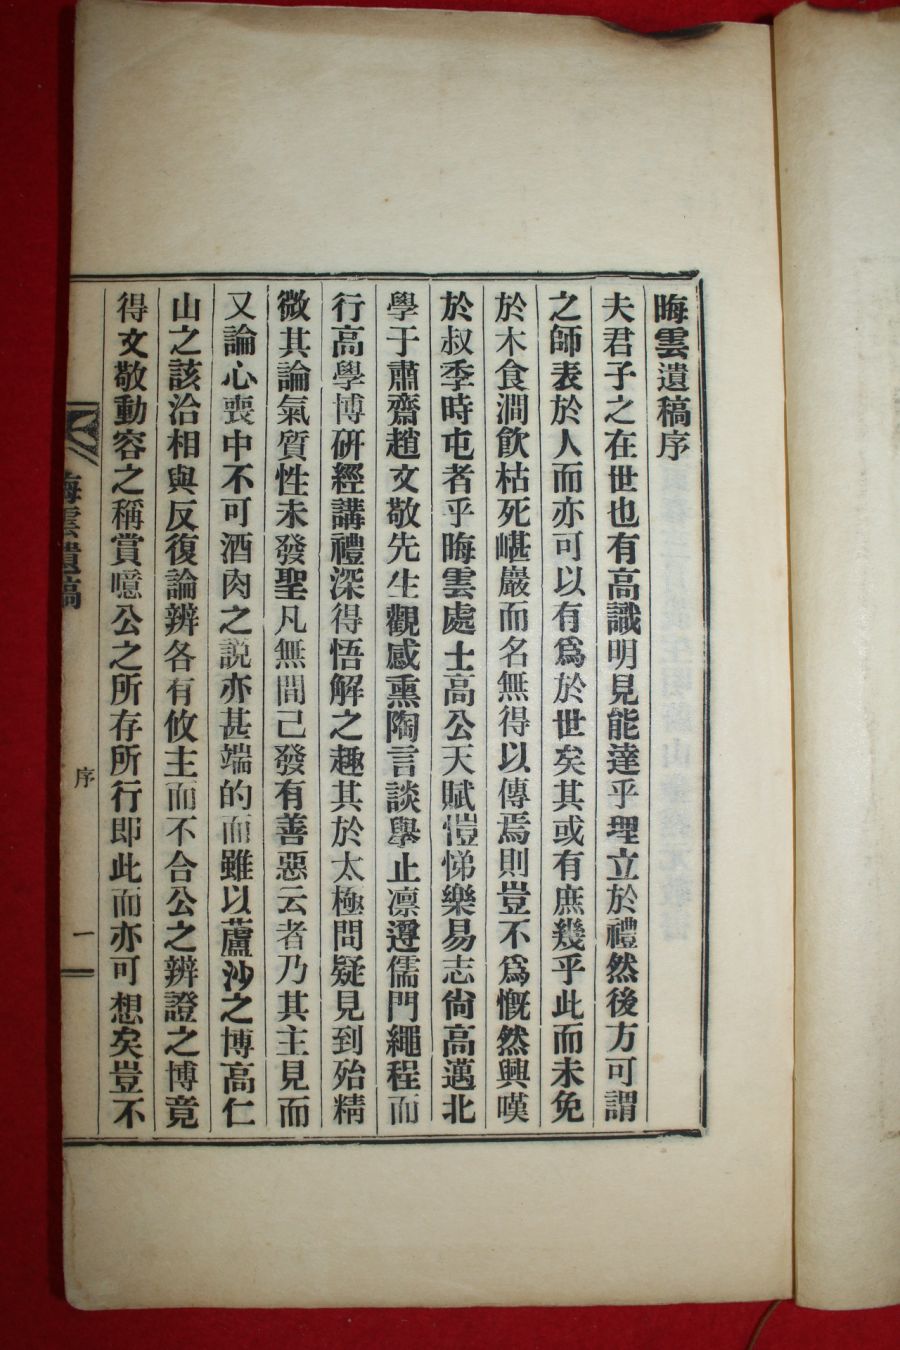 晦雲遺稿序
夫君子之在世也有高識明見能達乎理立於禮然後方可謂
之師表於人而亦可以有爲於世矣其或有庶幾乎此而未免
於木食澗飮枯死嵁巖而名無得以傳焉則豈不爲慨然興嘆
於叔季時屯者乎晦雲處士高公天賦愷悌樂易志尙高邁北
學于肅齋趙文敬先生觀感熏陶言談擧止凛遵儒門繩程而
行高學博硏經講禮深得悟解之趣其於太極問疑見到殆精
微其論氣質性未發聖凡無間已發有善惡云者乃其主見而
又論心喪中不可酒肉之説亦甚端的而雖以蘆沙之博高仁
山之該洽相與反復論辨各有攸主而不合公之辨證之博竟
得文敬動容之稱賞噫公之所存所行即此而亦可想矣豈不
晦雲遺稿
序
一